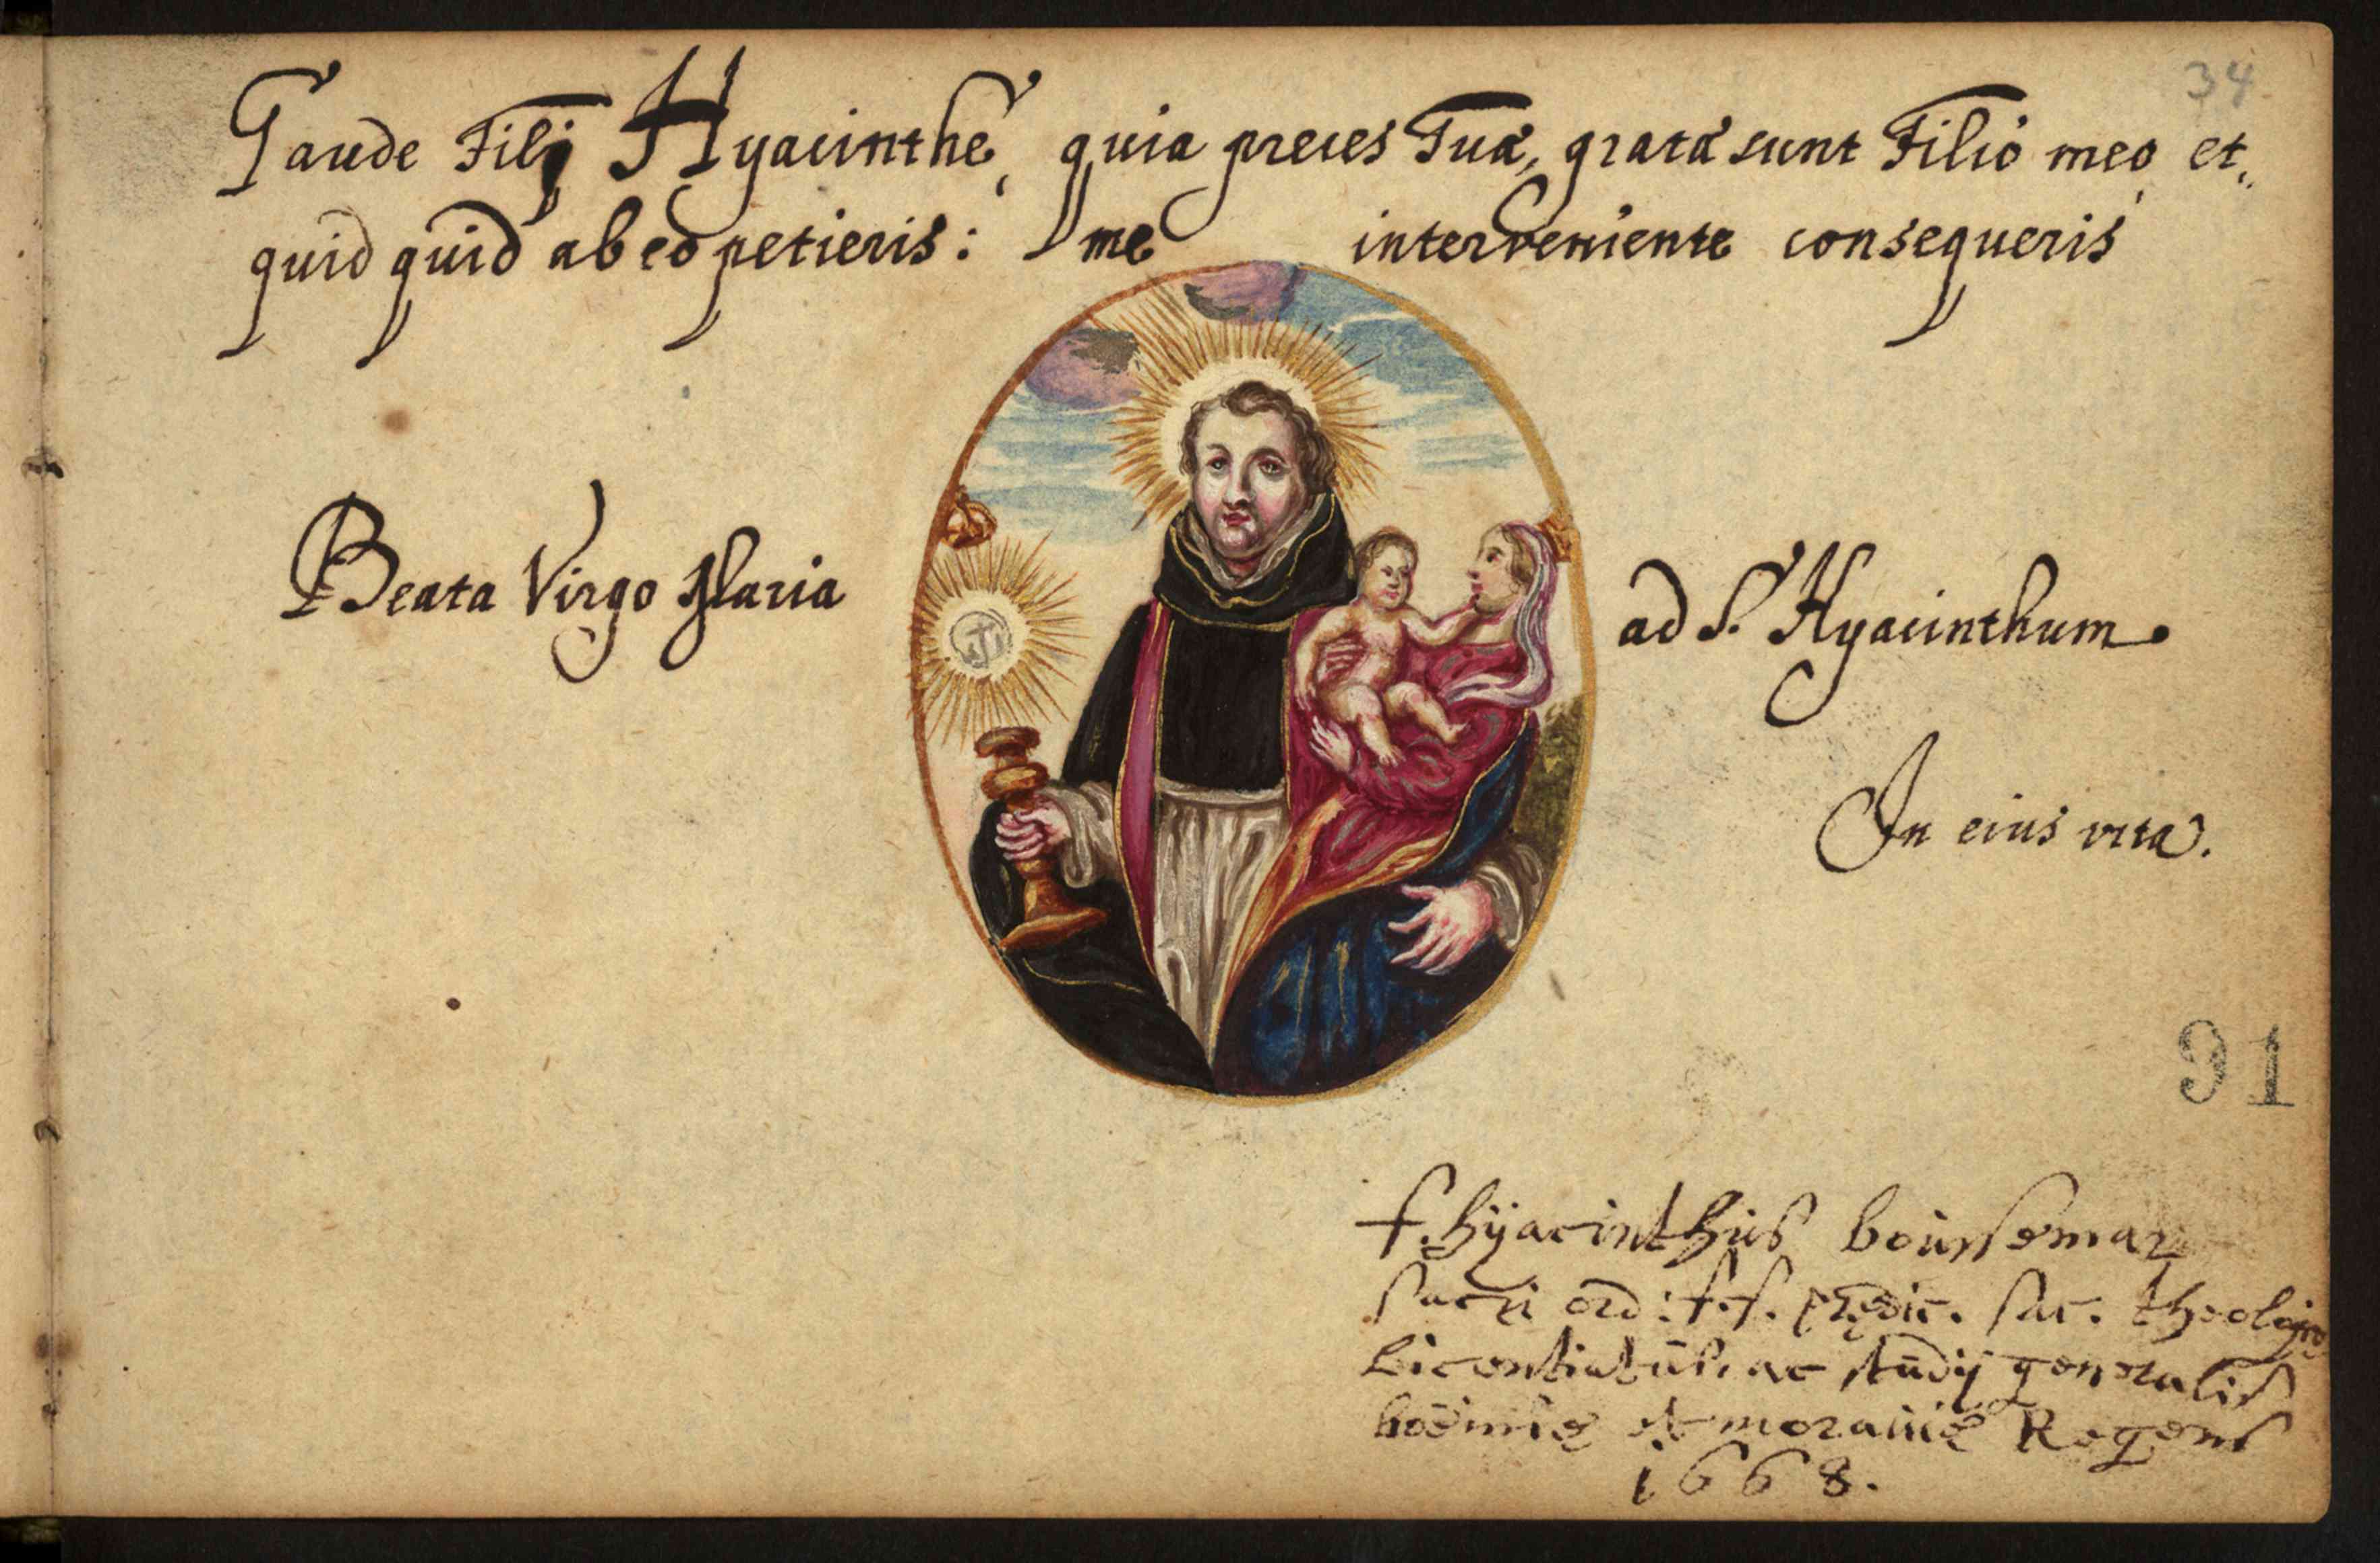 34
Gaude Filij Hyacinthe, quia preces Tuæ, gratæ sunt Filio meo et
quid quid ab eo petieris: me interveniente consequeris
Beata Virgo Maria
ad S. Hyacinthum.
In eius vita.
91
f. hÿacinthus boussemar
sacri ord: f.f. prædic. sac. theologiæ
Licentiatus, ac studij generalis
boëmiæ et moraviæ Regens
1668.